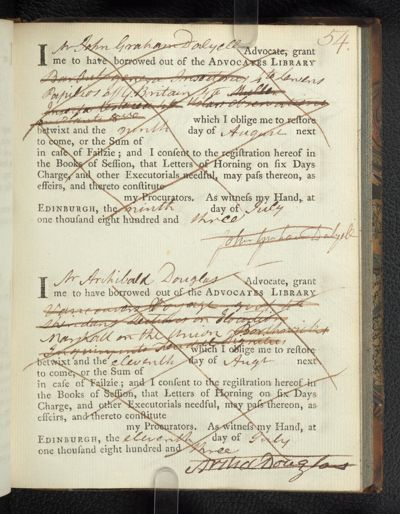 54.
I Mr John Graham Dalyell Advocate, grant
me to have borrowed out of the ADVOCATES LIBRARY
Papilios of G. Britain
which I oblige me to restore
betwixt and the ninth day of August next
to come, or the Sum of
in case of Failzie; and I consent to the registration hereof in
the Books of Session, that Letters of Horning on six Days
Charge, and other Executorials needful, may pass thereon, as
effeirs, and thereto constitute
my Procurators. As witness my Hand, at
EDINBURGH, the ninth day of July
one thousand eight hundred and three
John Graham Dalyell
I Mr Archibald Douglas Advocate, grant
me to have borrowed out of the ADVOCATES LIBRARY
Marshall on the
which I oblige me to restore
betwixt and the eleventh day of Augt next
to come, or the Sum of
in case of Failzie; and I consent to the registration hereof in
the Books of Session, that Letters of Horning on six Days
Charge, and other Executorials needful, may pass thereon, as
effeirs, and thereto constitute
my Procurators. As witness my Hand, at
EDINBURGH, the eleventh day of July
one thousand eight hundred and three
Archd Douglas